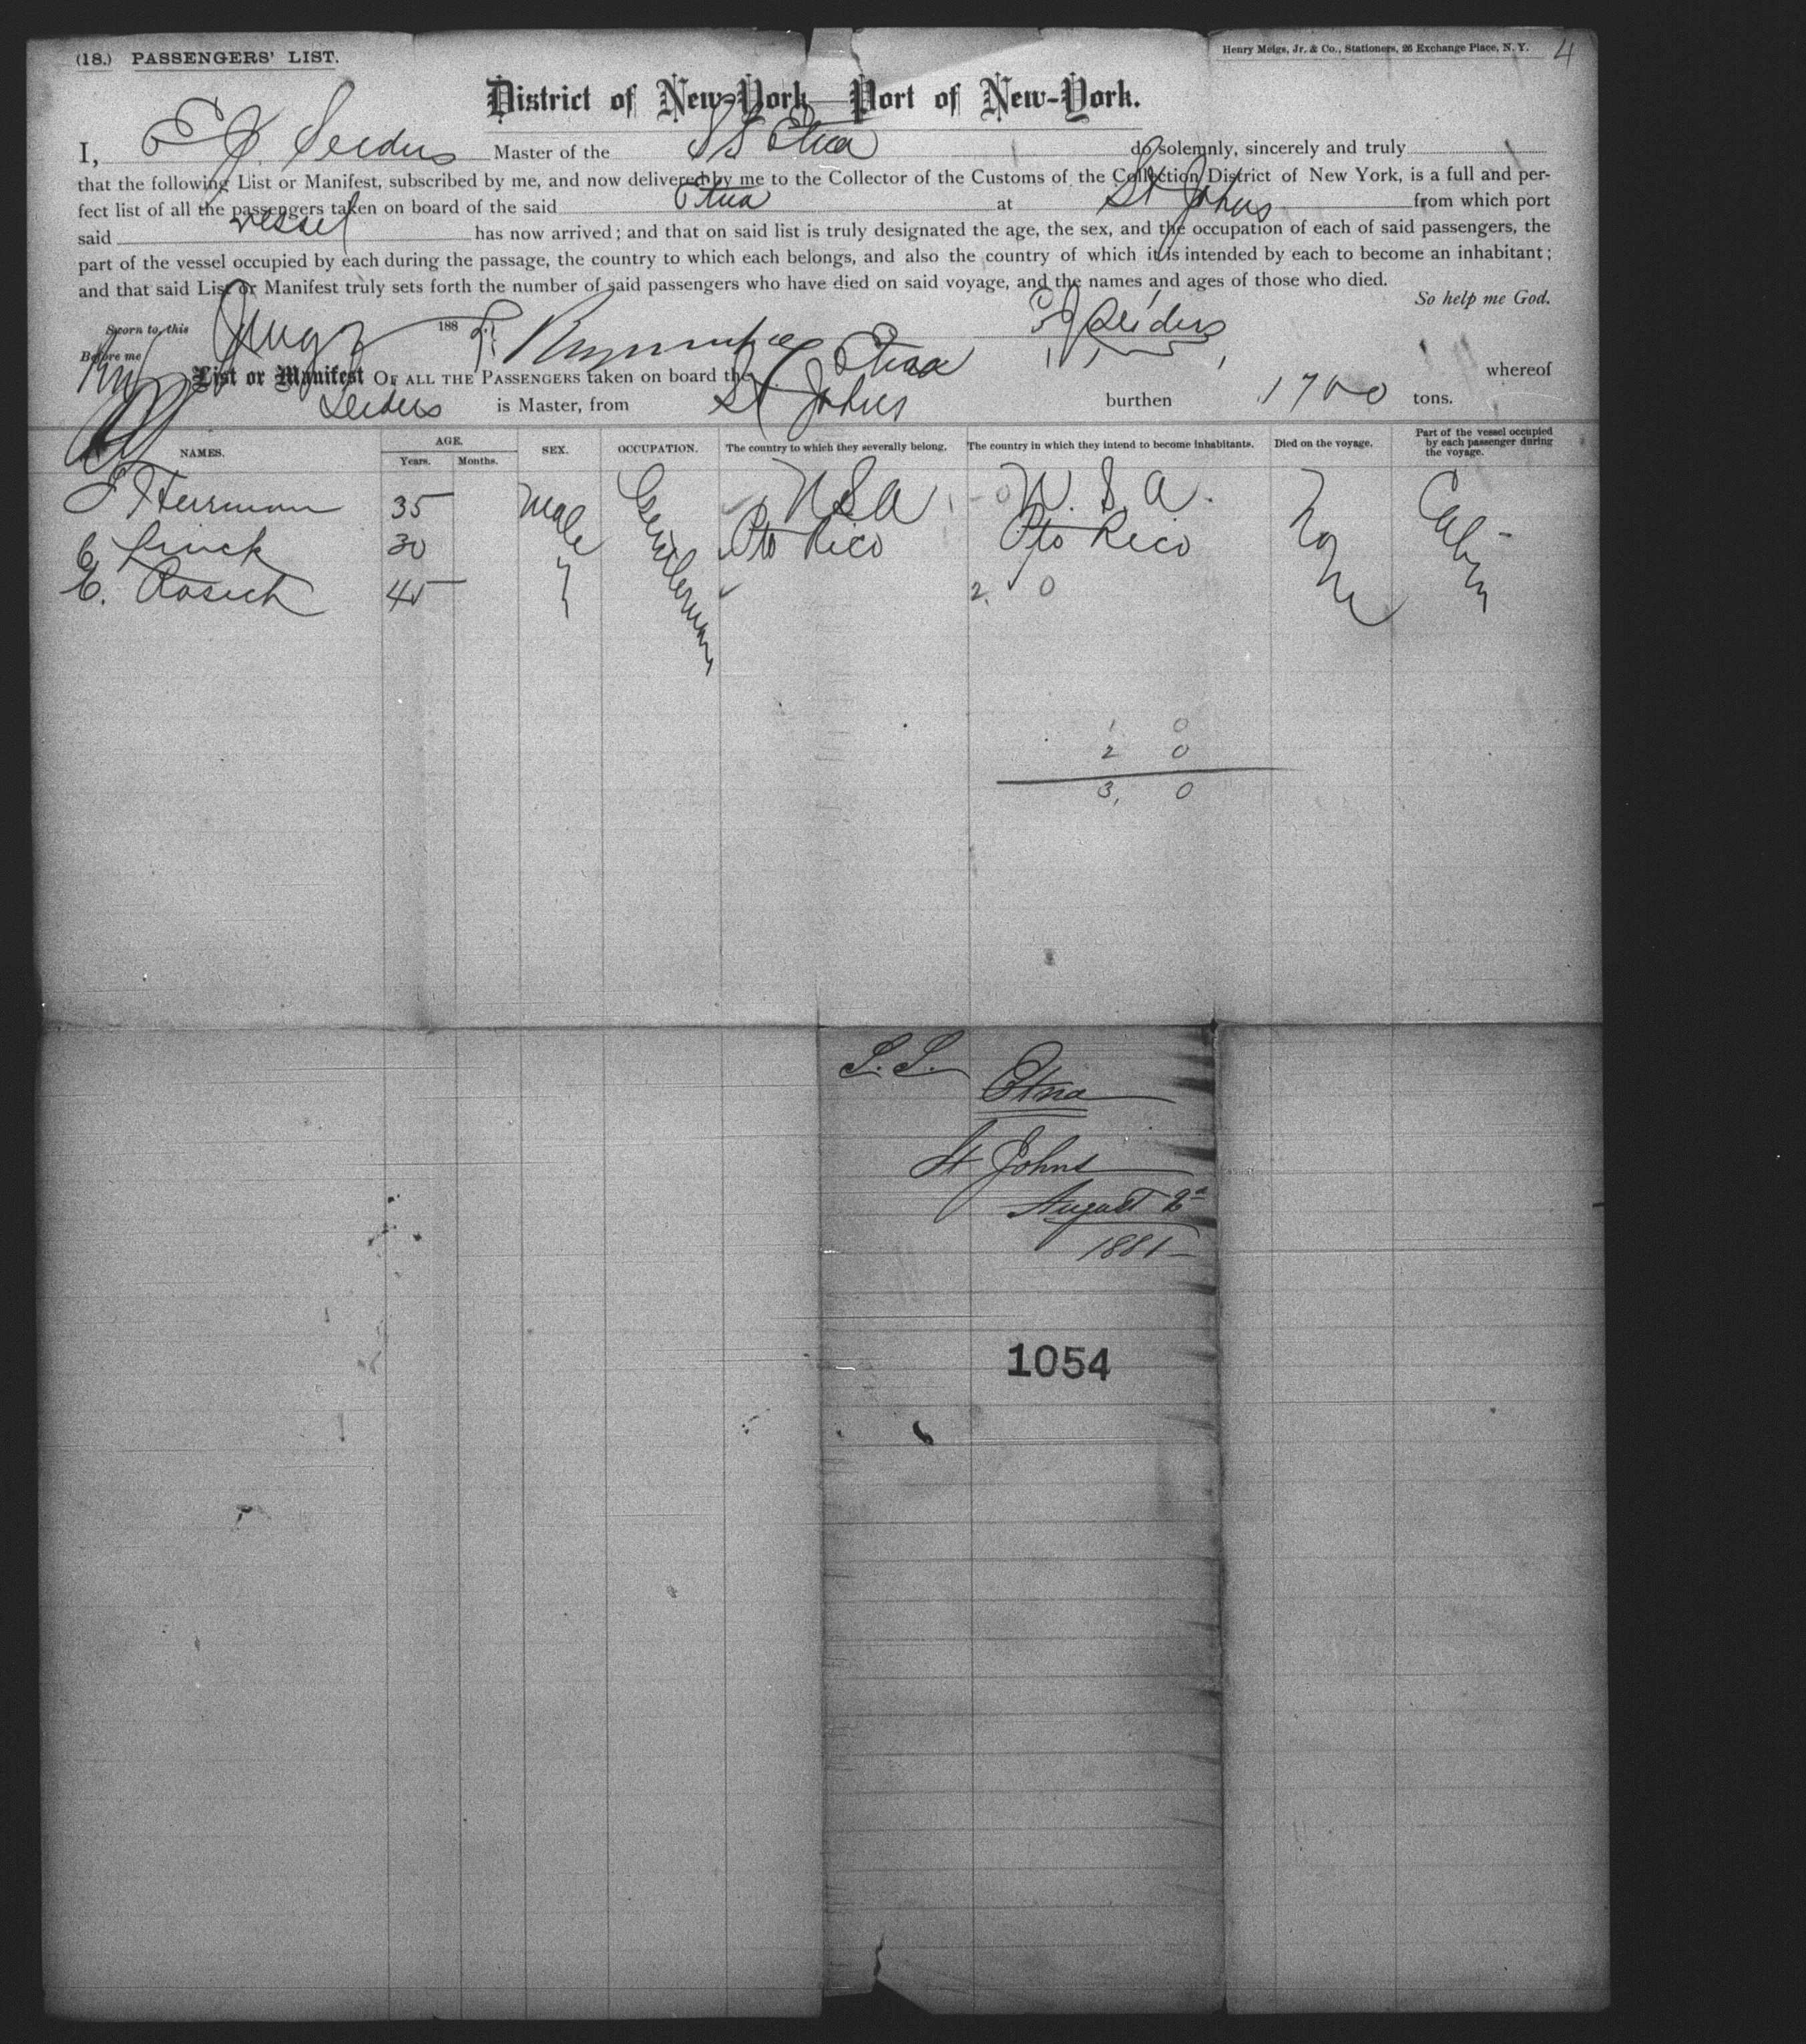 (18.) PASSENGERS' LIST.
Henry Meigs, Jr. & Co., Stationers, 26 Exchange Place, N. Y. 4
District of New-York—Port of New-York.
I, E J. Seiders Master of the SS Etna do solemnly, sincerely and truly
that the following List or Manifest, subscribed by me, and now delivered by me to the Collector of the Customs of the Collection District of New York, is a full and per-
fect list of all the passengers taken on board of the said Etna at St Johns from which port
said vessel has now arrived; and that on said list is truly designated the age, the sex, and the occupation of each of said passengers, the
part of the vessel occupied by each during the passage, the country to which each belongs, and also the country of which it is intended by each to become an inhabitant;
and that said List or Manifest truly sets forth the number of said passengers who have died on said voyage, and the names and ages of those who died.
So help me God.
Sworn to, this Aug 2 188 E J Seiders
Before me
List or Manifest OF ALL THE PASSENGERS taken on board the Etna whereof
Seiders is Master, from St Johns burthen 1700 tons.
NAMES. AGE. Years. Months. SEX. OCCUPATION. The country to which they severally belong. The country in which they intend to become inhabitants. Died on the voyage. Part of the vessel occupied by each passenger during the voyage.
Herrman 35 Male Gentlemen USA 1 - 0 U. S. A. None Cabin
C. Finck 30 Pto Rico Pto Rico
E. Rosich 45 2. 0
1 0
2 0
3, 0
S. S. Etna
St Johns
August 2d
1881
1054